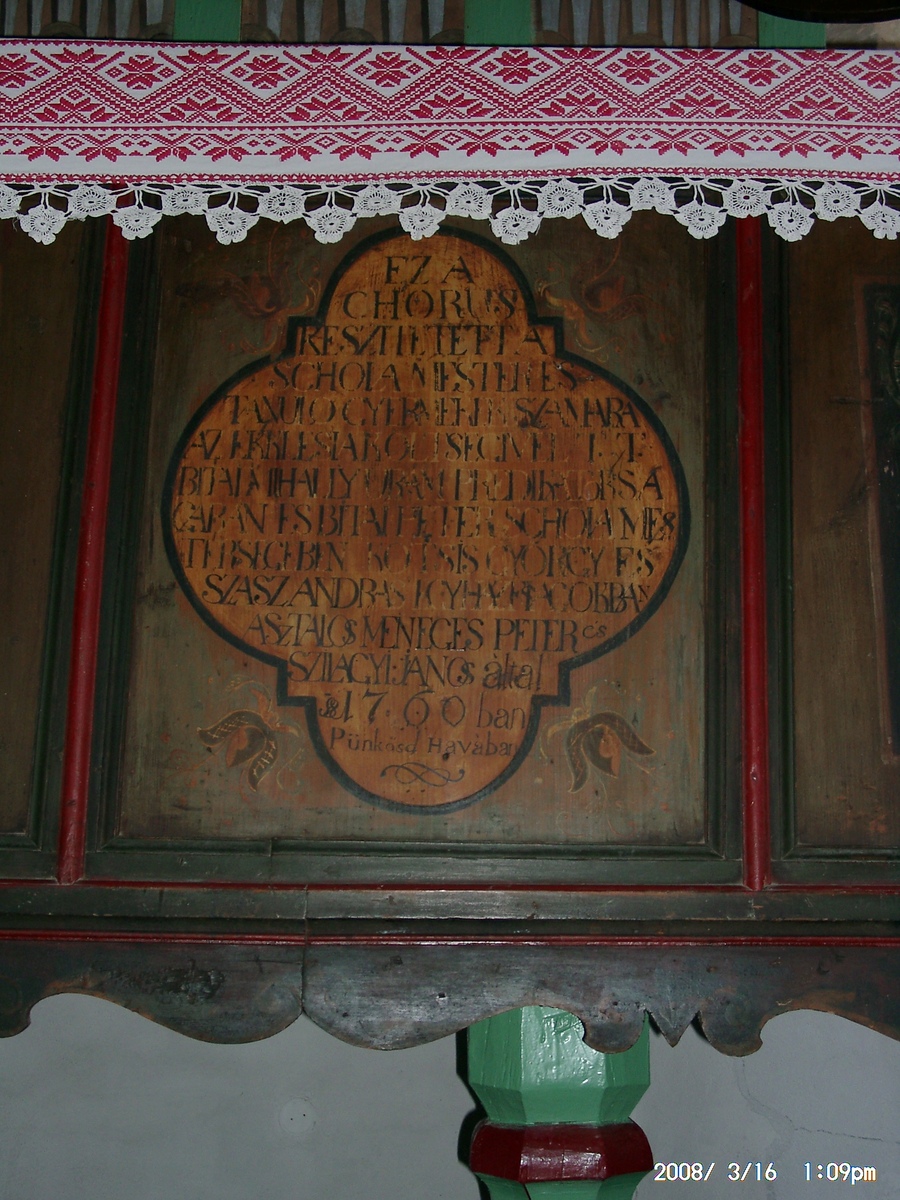 EZ A
CHORUS
RESZTIETETT A
SCHOLA MESTER ES
TANULO GYERMEKEK SZAMARA
AZ EKKLESIANOL SEGIVEL
BITAI MIHALLY URAM PREDIKATORSA
GABAN ES BITAI PETER SCHOLA MES
TERSEGEBEN KOTSIS GYORGY ES
SZASZ ANDRAS EGYHAZFIAGOKBAN
ASZTALOS MENEGES PETER és
SZILAGYI: JANOS altal
1760 ban
Pünkösd Havában
2008/ 3/16 1:09pm